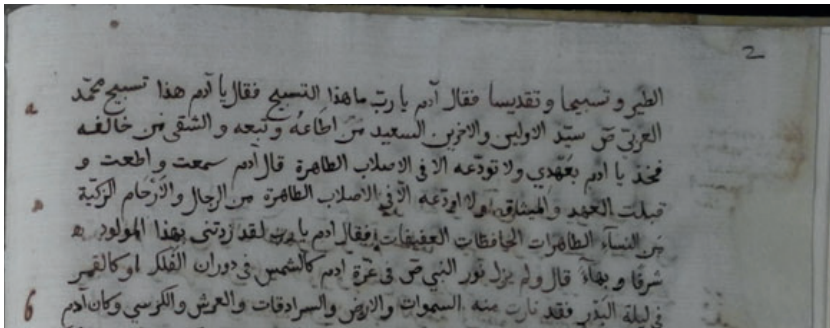 2
الطير و تسبيحا و تقديسا فقال آدم يا ربّ ما هذا التسبيح فقال يا آدم هذا تسبيح محمّد
العربيّ صّ سيّد الاولين والاخرين السعيد من اطاعهُ وتبعه و الشقى من خالفه
فخذ يا ادم بعَهْدِي ولا تودّعه الا فى الاصلاب الطاهرة قال آدم سمعت و اطعت و
قبلت العهد و الميثاق ولا اودّعه الّا فى الاصلاب الطاهرة من الرجال والأرحام الزكيّة
من النسآء الطاهرات الحافظات العفيفات فقال ادم يا رب لقد زدتنى بهذا المولود
شرفا و بهآءً قال ولم يزل نور النبي صّ فى غرّة ادم كالشمس فى دوران الفلك او كالقمر
فى ليلة البَدْر فقد نارت منه السموات والارض والسرادقات والعرش والكرسي وكان آدم